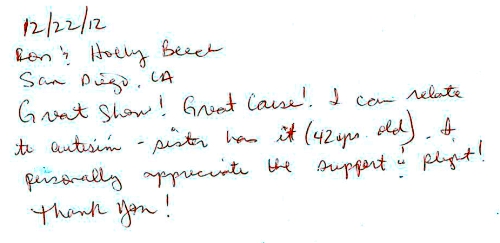 12/22/12
Ron & Holly Beech
San Diego, CA
Great Show! Great Cause! I can relate
to autisim - sister has it (42 yrs. old). I
personally appreciate the support & plight!
Thank You!